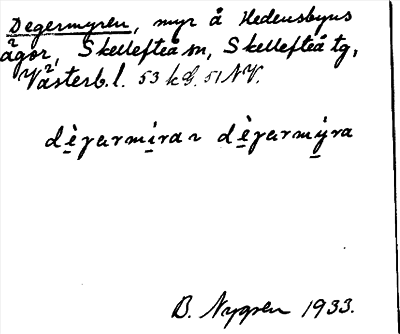 Degermyren, myr å Hedensbyns
ägor, Skellefteå sn, Skellefteå tg,
Västerb. l. 53 k G. 51 NV.
dègarmiran dègarmyra
B. Nygren 1933.